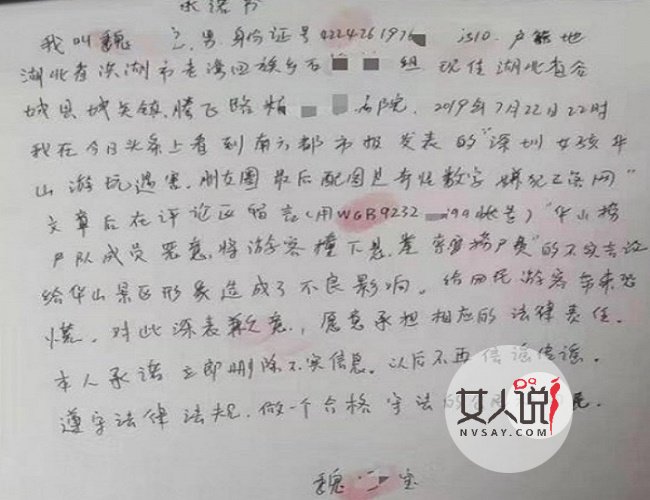 承诺书
我叫魏 男 身份证号 4224261976 1510.户籍地
湖北省洪湖市老湾回族乡石 组 现住湖北省谷
城县城关镇腾飞路 院. 2019年7月22日22时
我在今日头条上看到南方都市报发表的"深圳女孩华
山游玩遇害.朋友圈最后配图是奇怪数字 嫌犯已落网"
文章后在评论区留言(用WGB9232 账号)"华山
队成员恶意将游客撞下悬崖 "的不实言论
给华山景区形象造成了不良影响。给 游客带来恐
慌. 对此深表歉意, 愿意承担相应的法律责任.
本人承诺立即删除不实信息。以后不再信谣传谣.
遵守法律法规.做一个合格守法的 民.
魏 宝
女人说!
NVSAY.COM